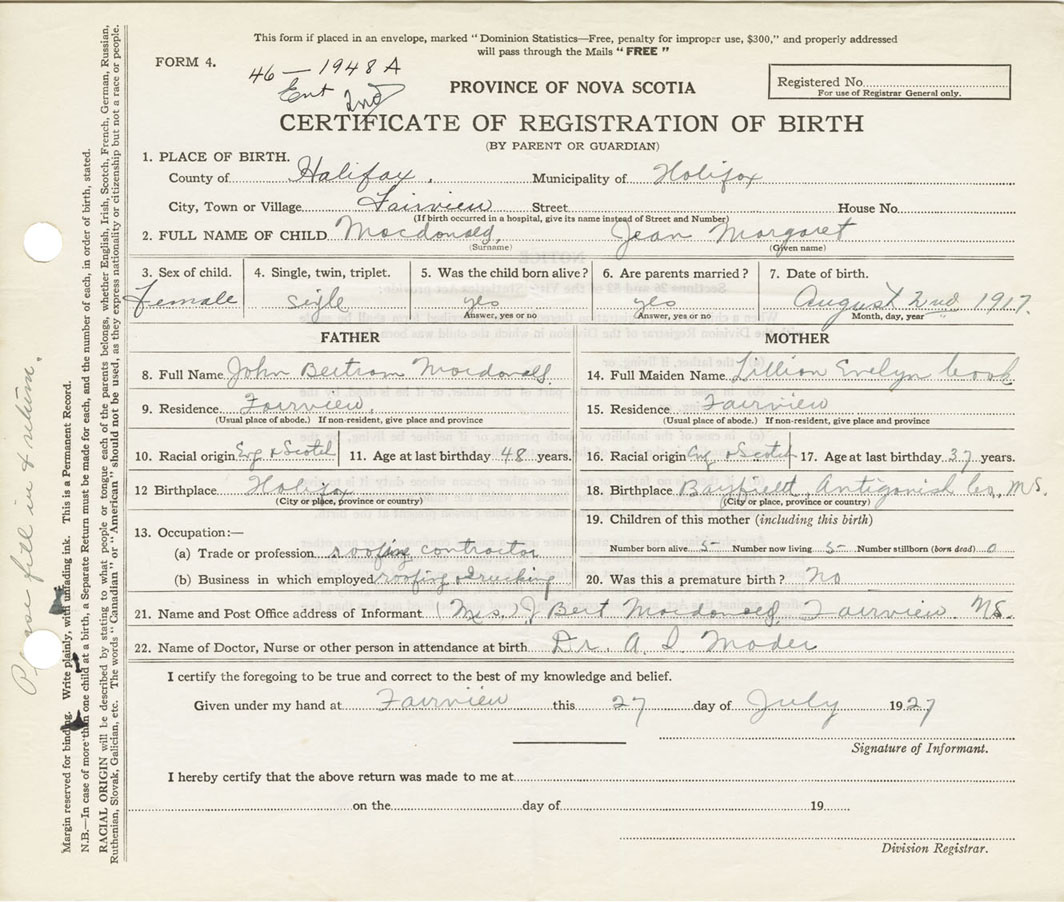 This form if placed in an envelope, marked "Dominion Statistics—Free, penalty for improper use, $300," and properly addressed
will pass through the Mails "FREE"
FORM 4.
46 - 1948 A
Ent 2nd
PROVINCE OF NOVA SCOTIA
Registered No.
For use of Registrar General only.
CERTIFICATE OF REGISTRATION OF BIRTH
(BY PARENT OR GUARDIAN)
1. PLACE OF BIRTH.
County of Halifax, Municipality of Halifax
City, Town or Village Fairview Street House No.
(If birth occurred in a hospital, give its name instead of Street and Number)
2. FULL NAME OF CHILD Macdonald, Jean Margaret
(Surname) (Given name)
3. Sex of child. 4. Single, twin, triplet. 5. Was the child born alive? 6. Are parents married? 7. Date of birth.
Female sigle yes yes August 2nd 1917.
Answer, yes or no Answer, yes or no Month, day, year
FATHER MOTHER
8. Full Name John Bertram Macdonald. 14. Full Maiden Name Lillian Evelyn Cook
9. Residence Fairview, 15. Residence Fairview
(Usual place of abode.) If non-resident, give place and province (Usual place of abode.) If non-resident, give place and province
10. Racial origin Eng & Scotch 11. Age at last birthday 48 years. 16. Racial origin Eng & Scotch 17. Age at last birthday 37 years.
12 Birthplace Halifax 18. Birthplace Bayfield, Antigonish Co. N.S.
(City or place, province or country) (City or place, province or country)
13. Occupation:— 19. Children of this mother (including this birth)
(a) Trade or profession roofing contractor Number born alive 5 Number now living 5 Number stillborn (born dead) 0
(b) Business in which employed roofing & trucking 20. Was this a premature birth? No
21. Name and Post Office address of Informant (Mrs.) J Bert Macdonald, Fairview N.S.
22. Name of Doctor, Nurse or other person in attendance at birth Dr. A. I. Mader
I certify the foregoing to be true and correct to the best of my knowledge and belief.
Given under my hand at Fairview this 27 day of July 1927
Signature of Informant.
I hereby certify that the above return was made to me at
on the day of 19
Division Registrar.
Please fill in & return.
Margin reserved for binding. Write plainly, with unfading ink. This is a Permanent Record.
N.B.—In case of more than one child at a birth, a Separate Return must be made for each, and the number of each, in order of birth, stated.
RACIAL ORIGIN will be described by stating to what people or tongue each of the parents belongs, whether English, Irish, Scotch, French, German, Russian,
Ruthenian, Slovak, Galician, etc. The words "Canadian" or "American" should not be used, as they express nationality or citizenship but not a race or people.